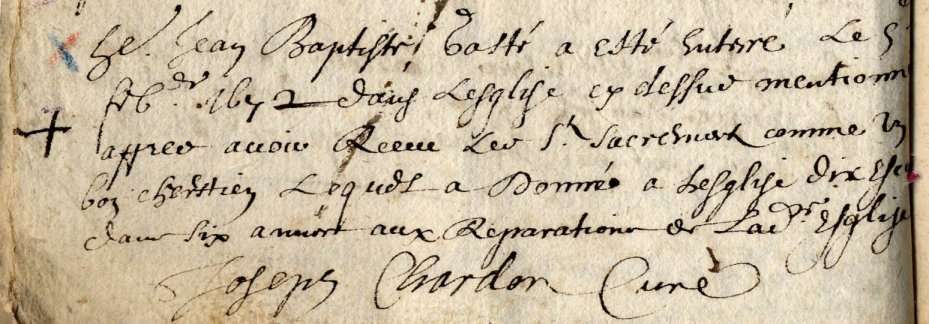 Sr. Jean Baptiste Gasté a esté enterré Le 5
feb.er 1672 dans Lesglise cy dessus mentionne
appres avoir Receu Les Sts Sacrement comme un
bon chrestien Lequel a Donné a Lesglise dix Escu
dans six années aux Reparations de Lad.te Esglise
Joseph Chardon Curé